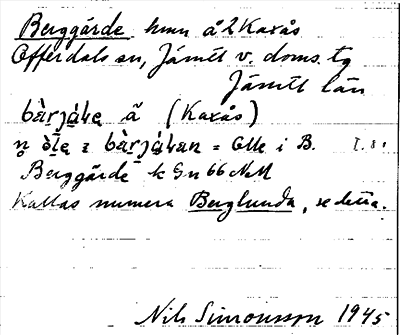 Berggårde hmn å 2 Kaxås
Offerdals sn, Jämtl v. doms. tg
Jämtl län
bàrjáka̱ ã (Kaxås)
n̥ òla̱ i bàrjákan = Olle i B. I. s.
Berggårde k Gn 66 NM
Kallas numera Berglunda, se detta.
Nils Simonsson 1945